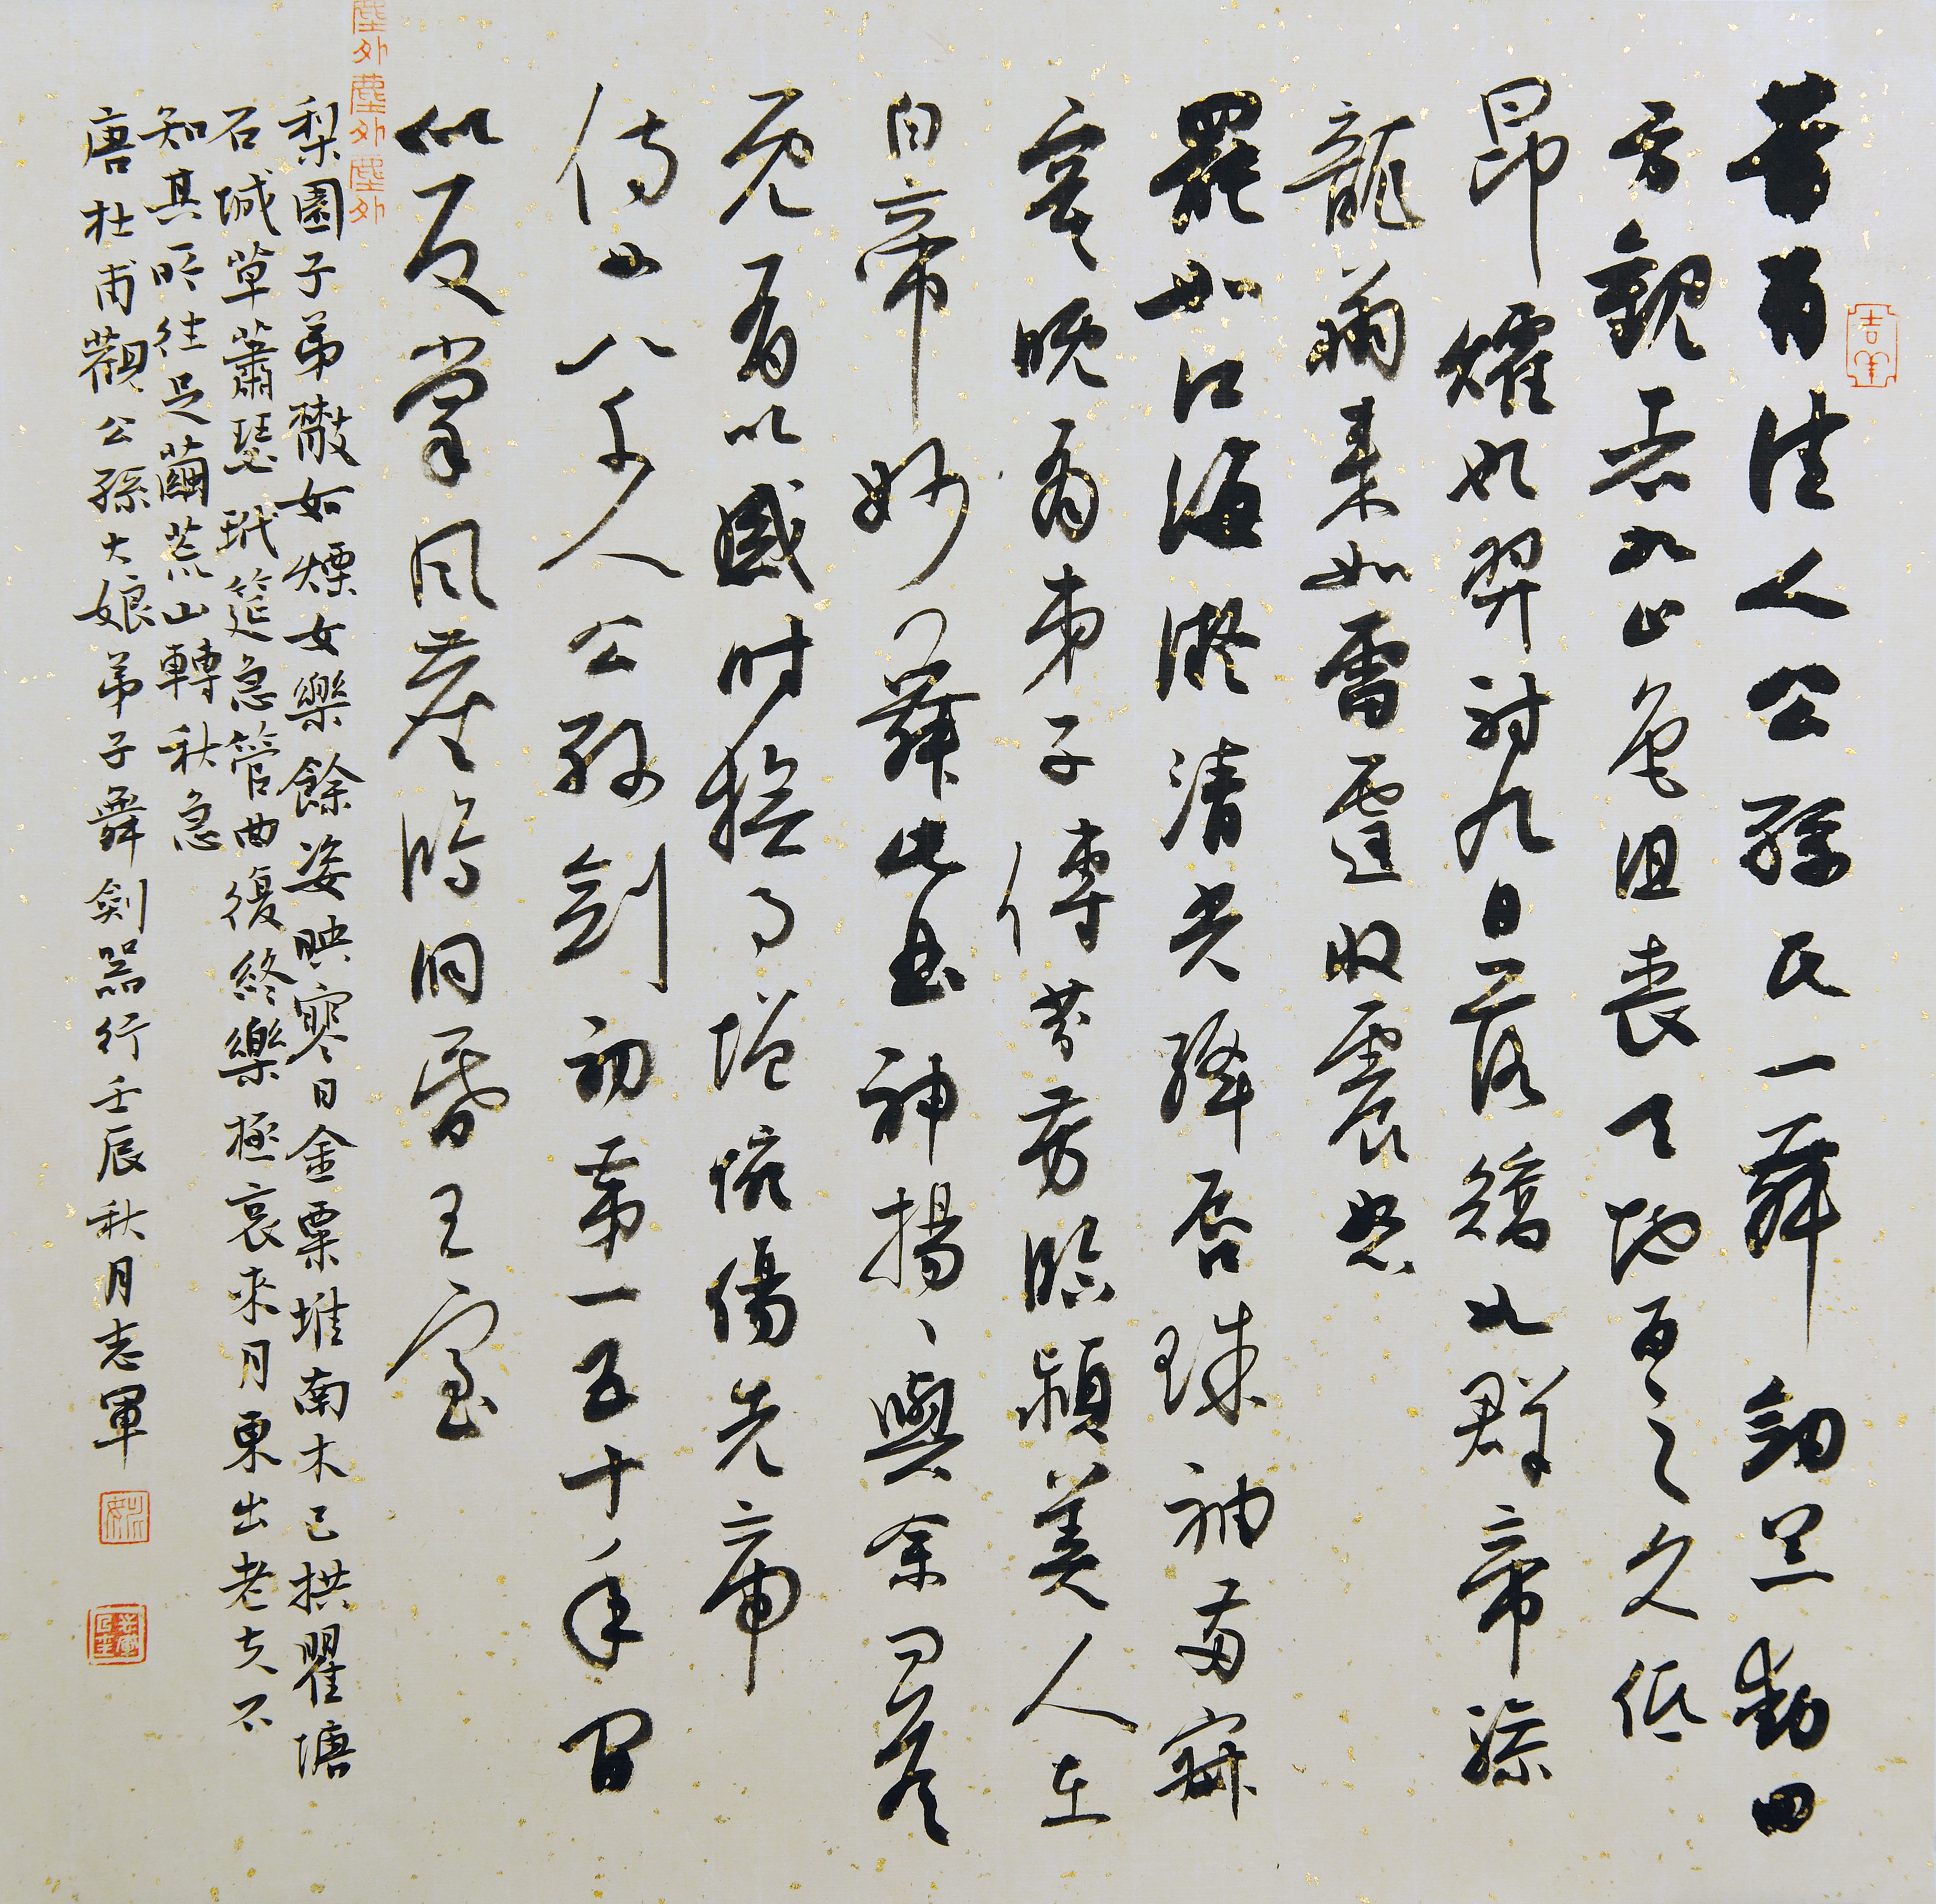 吉羊
昔有佳人公孫氏一舞劍器動四
方觀者如山色沮喪天地為之久低
昂燿如羿射九日落矯如群帝驂
龍翔來如雷霆收震怒
罷如江海凝清光絳唇珠袖兩寂
寞晚有弟子傳芬芳臨潁美人在
白帝妙舞此曲神揚、與余問答
既有以感時撫事增惋傷先帝
侍女八千人公孫劍初第一五十年間
似反掌風塵澒洞昏王室
塵外塵外塵外
梨園子弟散如煙女樂餘姿映寒日金粟堆南木已拱瞿塘
石城草蕭瑟玳筵急管曲復終樂極哀來月東出老夫不
知其所往足繭荒山轉秋急
唐杜甫觀公孫大娘弟子舞劍器行壬辰秋月志軍